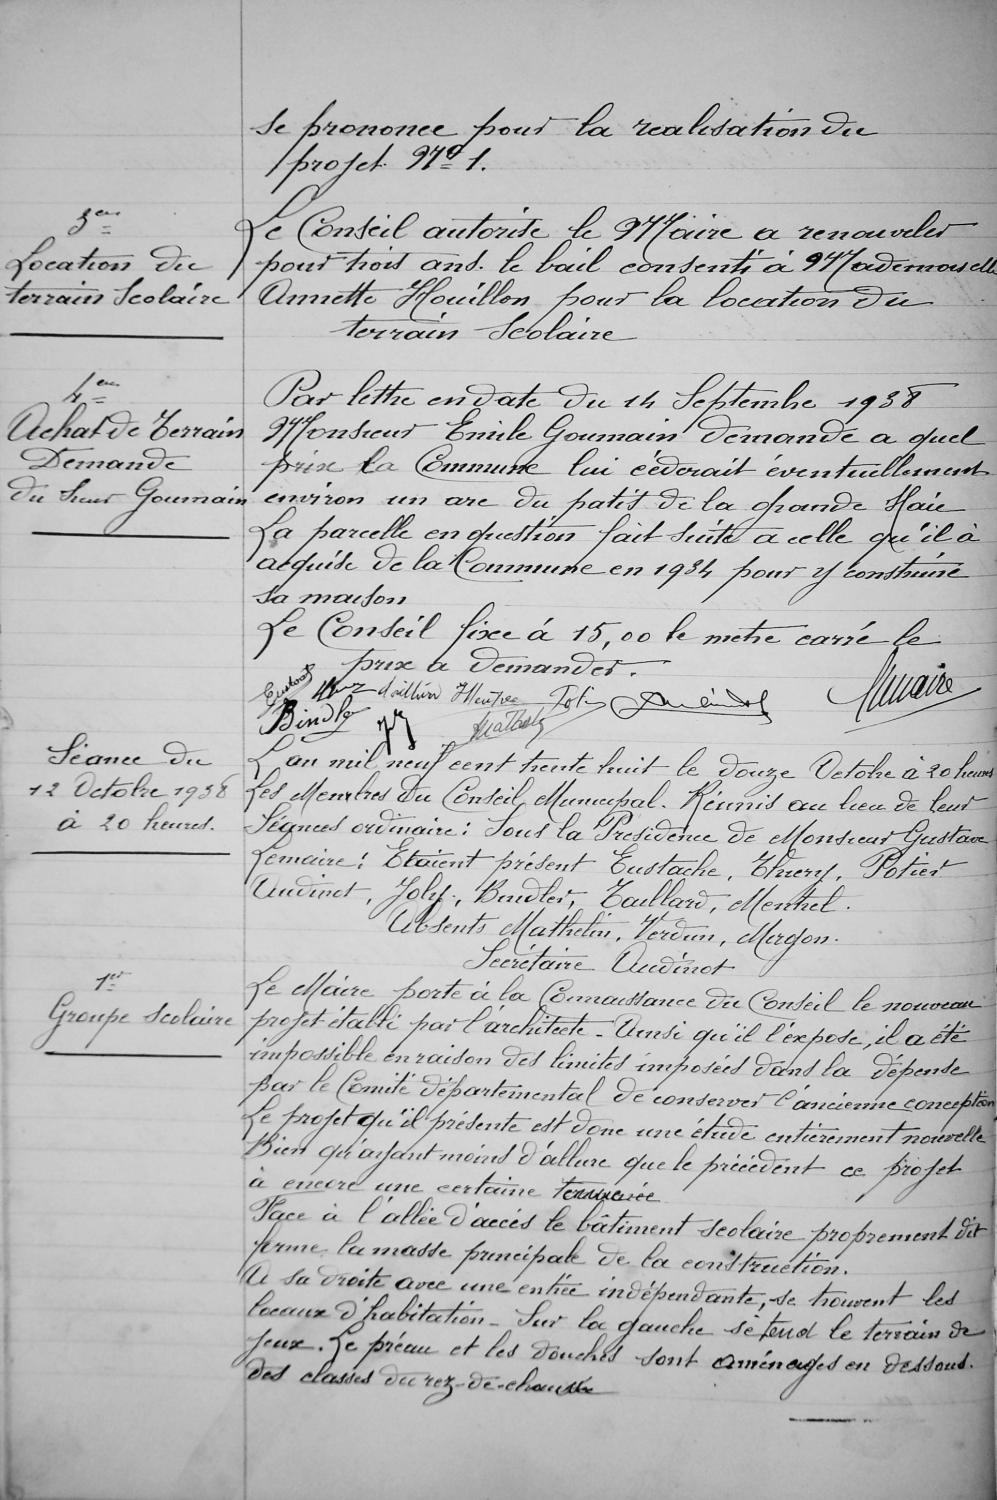 se prononce pour la realisation du
projet N° 1.
3em
Location du
terrain scolaire
Le Conseil autorise le Maire a renouveler
pour trois ans. le bail consenti à Mademoiselle
Annette Houillon pour la location du
terrain scolaire
4em
Achat de Terrain
Demande
du sieur Goumain
Par lettre en date du 14 Septembre 1938
Monsieur Emile Goumain demande a quel
prix la Commune lui céderait éventuellement
environ un are du patis de la grande Haie
La parcelle en question fait suite a celle qu'il à
acquise de la Commune en 1934 pour y construire
sa maison
Le Conseil fixe à 15,00 le metre carré le
prix a demander.
Bindler
Lemaire
Séance du
12 Octobre 1938
à 20 heures.
L'an mil neuf cent trente huit le douze Octobre à 20 heures
Les Membres du Conseil Municipal. Réunis au lieu de leur
Séances ordinaire: Sous la Presidence de Monsieur Gustave
Lemaire: Etaient présent Eustache, Thiery, Potier
Audinot, Joly, Bindler, Taillard, Menhel.
Absents Mathelin, Verdun, Morgon.
Secrétaire Audinot
1er
Groupe scolaire
Le Maire porte à la Connaissance du Conseil le nouveau
projet établi par l'architecte - Ainsi qu'il l'expose, il a été
impossible en raison des limites imposées dans la dépense
par le Comité départemental de conserver l'ancienne conception
Le projet qu'il présente est donc une étude entièrement nouvelle
Bien qu'ayant moins d'allure que le précédent ce projet
à encore une certaine
Face à l'allée d'accés le bâtiment scolaire proprement dit
forme la masse principale de la construction.
A sa droite avec une entrée indépendante, se trouvent les
locaux d'habitation - Sur la gauche s'étend le terrain de
jeux. Le préau et les douches sont aménagés en dessous
des classes du rez-de-chaussée